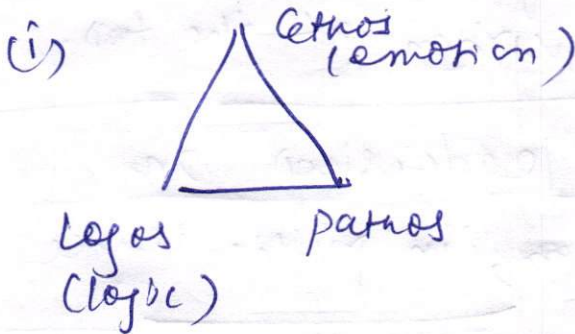 (i)
Ethos
(emotion)
Logos
(logic)
pathos